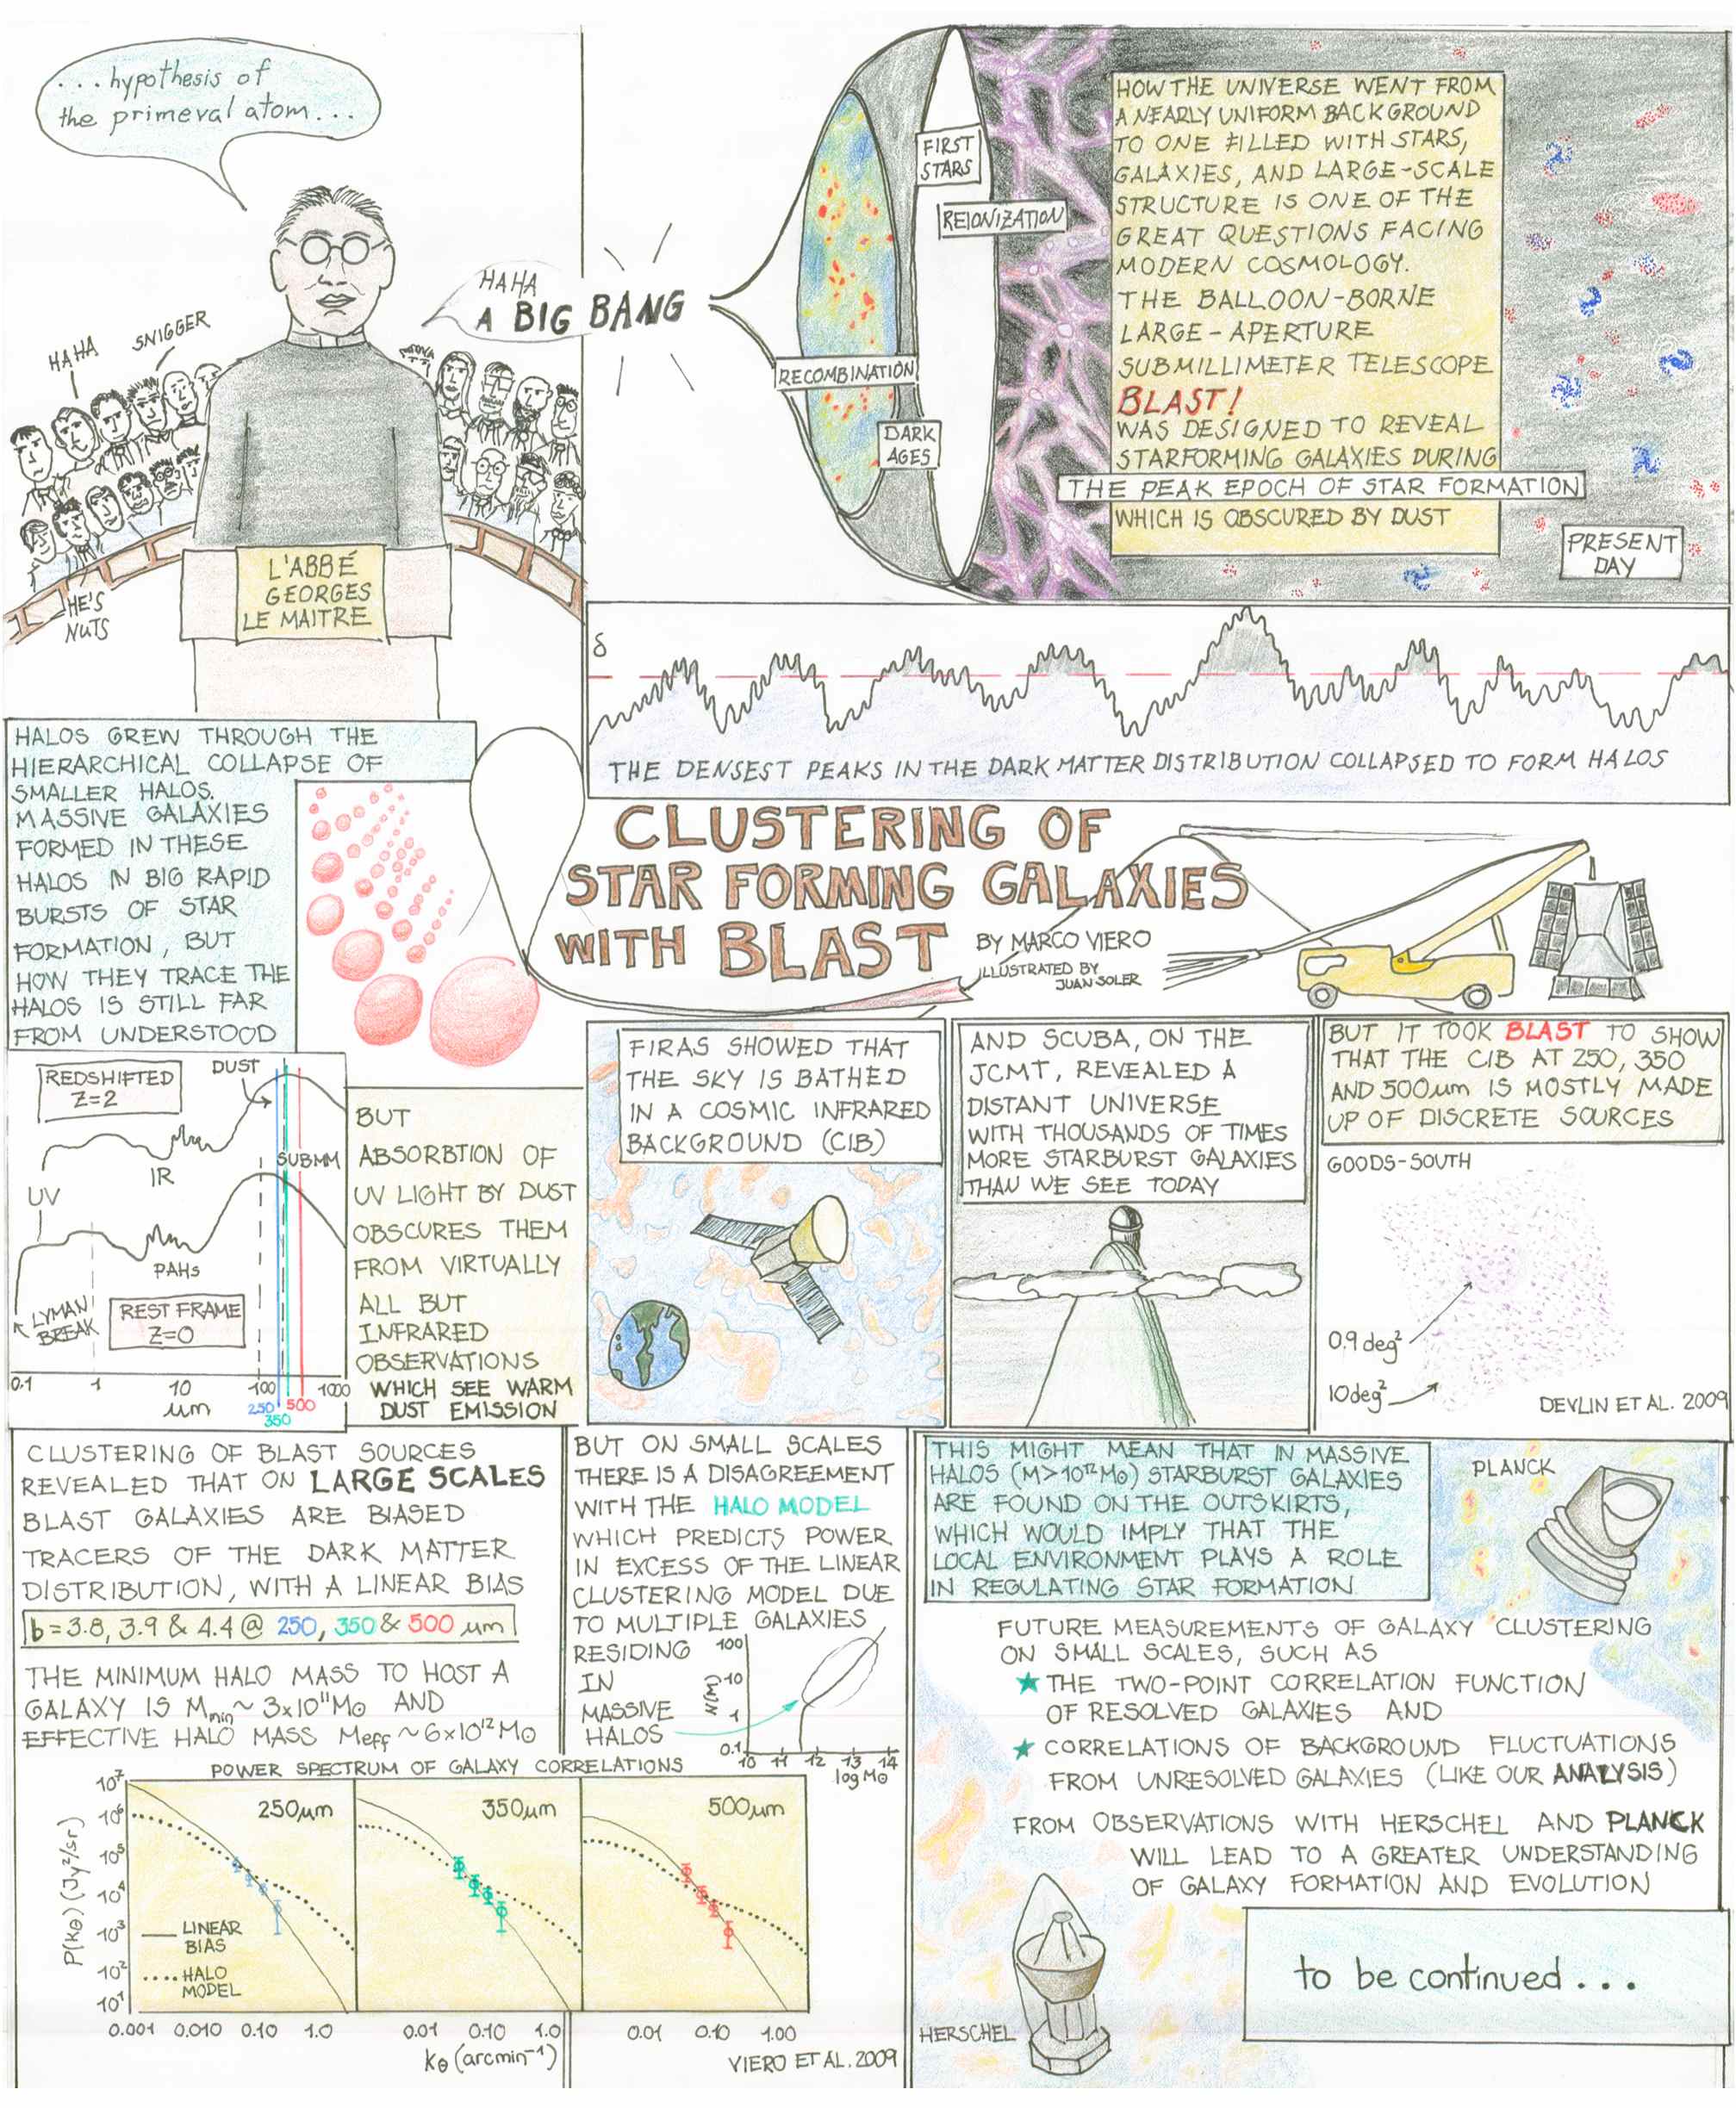 ...hypothesis of
the primeval atom...
HAHA
SNIGGER
HAHA
A BIG BANG
HE'S
NUTS
L'ABBÉ
GEORGES
LE MAITRE
RECOMBINATION
DARK
AGES
FIRST
STARS
REIONIZATION
HOW THE UNIVERSE WENT FROM
A NEARLY UNIFORM BACKGROUND
TO ONE FILLED WITH STARS,
GALAXIES, AND LARGE-SCALE
STRUCTURE IS ONE OF THE
GREAT QUESTIONS FACING
MODERN COSMOLOGY.
THE BALLOON-BORNE
LARGE-APERTURE
SUBMILLIMETER TELESCOPE
BLAST!
WAS DESIGNED TO REVEAL
STARFORMING GALAXIES DURING
THE PEAK EPOCH OF STAR FORMATION
WHICH IS OBSCURED BY DUST
PRESENT
DAY
δ
THE DENSEST PEAKS IN THE DARK MATTER DISTRIBUTION COLLAPSED TO FORM HALOS
HALOS GREW THROUGH THE
HIERARCHICAL COLLAPSE OF
SMALLER HALOS.
MASSIVE GALAXIES
FORMED IN THESE
HALOS IN BIG RAPID
BURSTS OF STAR
FORMATION, BUT
HOW THEY TRACE THE
HALOS IS STILL FAR
FROM UNDERSTOOD
CLUSTERING OF
STAR FORMING GALAXIES
WITH BLAST
BY MARCO VIERO
ILLUSTRATED BY
JUAN SOLER
REDSHIFTED
Z=2
DUST
SUBMM
IR
UV
PAHs
LYMAN
BREAK
REST FRAME
Z=0
0.1 1 10 100 1000
μm
250
350
500
BUT
ABSORBTION OF
UV LIGHT BY DUST
OBSCURES THEM
FROM VIRTUALLY
ALL BUT
INFRARED
OBSERVATIONS
WHICH SEE WARM
DUST EMISSION
FIRAS SHOWED THAT
THE SKY IS BATHED
IN A COSMIC INFRARED
BACKGROUND (CIB)
AND SCUBA, ON THE
JCMT, REVEALED A
DISTANT UNIVERSE
WITH THOUSANDS OF TIMES
MORE STARBURST GALAXIES
THAN WE SEE TODAY
BUT IT TOOK BLAST TO SHOW
THAT THE CIB AT 250, 350
AND 500μm IS MOSTLY MADE
UP OF DISCRETE SOURCES
GOODS-SOUTH
0.9 deg²
10 deg²
DEVLIN ET AL. 2009
CLUSTERING OF BLAST SOURCES
REVEALED THAT ON LARGE SCALES
BLAST GALAXIES ARE BIASED
TRACERS OF THE DARK MATTER
DISTRIBUTION, WITH A LINEAR BIAS
b=3.8, 3.9 & 4.4 @ 250, 350 & 500 μm
THE MINIMUM HALO MASS TO HOST A
GALAXY IS Mmin~ 3x10¹¹M⊙ AND
EFFECTIVE HALO MASS Meff ~6x10¹²M⊙
BUT ON SMALL SCALES
THERE IS A DISAGREEMENT
WITH THE HALO MODEL
WHICH PREDICTS POWER
IN EXCESS OF THE LINEAR
CLUSTERING MODEL DUE
TO MULTIPLE GALAXIES
RESIDING
IN
MASSIVE
HALOS
100
10
1
0.1
⟨N/M⟩
10 11 12 13 14
log M⊙
POWER SPECTRUM OF GALAXY CORRELATIONS
P(kθ) (Jy²/sr)
10⁷
10⁶
10⁵
10⁴
10³
10²
10¹
250μm
350μm
500μm
LINEAR
BIAS
HALO
MODEL
0.001 0.010 0.10 1.0
0.01 0.10 1.0
0.01 0.10 1.00
kθ (arcmin⁻¹)
VIERO ET AL. 2009
THIS MIGHT MEAN THAT IN MASSIVE
HALOS (M>10¹²M⊙) STARBURST GALAXIES
ARE FOUND ON THE OUTSKIRTS,
WHICH WOULD IMPLY THAT THE
LOCAL ENVIRONMENT PLAYS A ROLE
IN REGULATING STAR FORMATION
PLANCK
FUTURE MEASUREMENTS OF GALAXY CLUSTERING
ON SMALL SCALES, SUCH AS
★ THE TWO-POINT CORRELATION FUNCTION
OF RESOLVED GALAXIES AND
★ CORRELATIONS OF BACKGROUND FLUCTUATIONS
FROM UNRESOLVED GALAXIES (LIKE OUR ANALYSIS)
FROM OBSERVATIONS WITH HERSCHEL AND PLANCK
WILL LEAD TO A GREATER UNDERSTANDING
OF GALAXY FORMATION AND EVOLUTION
HERSCHEL
to be continued...